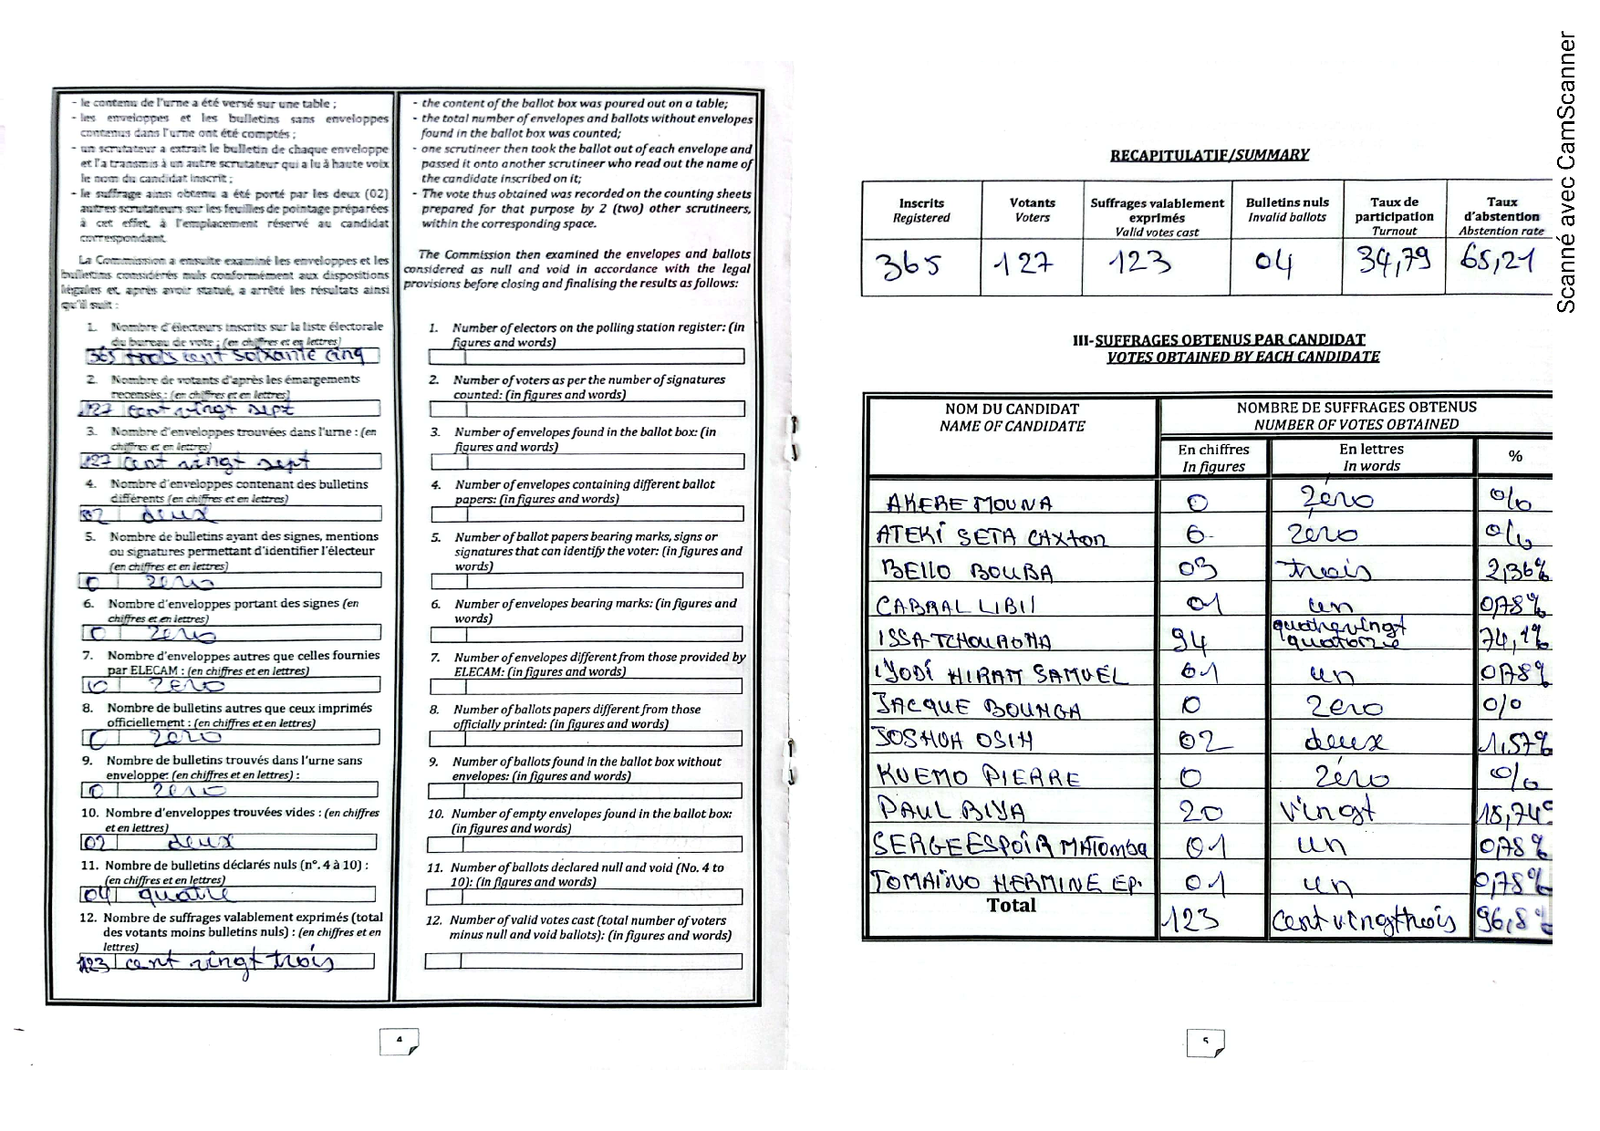 - le contenu de l'urne a été versé sur une table ;
- les enveloppes et les bulletins sans enveloppes
contenus dans l'urne ont été comptés ;
- un scrutateur a extrait le bulletin de chaque enveloppe
et l'a transmis à un autre scrutateur qui a lu à haute voix
le nom du candidat inscrit ;
- le suffrage ainsi obtenu a été porté par les deux (02)
autres scrutateurs sur les feuilles de pointage préparées
à cet effet, à l'emplacement réservé au candidat
correspondant.
La Commission a ensuite examiné les enveloppes et les
bulletins considérés nuls conformément aux dispositions
légales et, après avoir statué, a arrêté les résultats ainsi
qu'il suit :
1. Nombre d'électeurs inscrits sur la liste électorale
du bureau de vote : (en chiffres et en lettres)
365 trois cent soixante cinq
2. Nombre de votants d'après les émargements
recensés : (en chiffres et en lettres)
127 cent vingt sept
3. Nombre d'enveloppes trouvées dans l'urne : (en
chiffres et en lettres)
127 cent vingt sept
4. Nombre d'enveloppes contenant des bulletins
différents (en chiffres et en lettres)
02 deux
5. Nombre de bulletins ayant des signes, mentions
ou signatures permettant d'identifier l'électeur
(en chiffres et en lettres)
0 zero
6. Nombre d'enveloppes portant des signes (en
chiffres et en lettres)
0 zero
7. Nombre d'enveloppes autres que celles fournies
par ELECAM : (en chiffres et en lettres)
0 zero
8. Nombre de bulletins autres que ceux imprimés
officiellement : (en chiffres et en lettres)
0 zero
9. Nombre de bulletins trouvés dans l'urne sans
enveloppe: (en chiffres et en lettres) :
0 zero
10. Nombre d'enveloppes trouvées vides : (en chiffres
et en lettres)
02 deux
11. Nombre de bulletins déclarés nuls (n°. 4 à 10) :
(en chiffres et en lettres)
04 quatre
12. Nombre de suffrages valablement exprimés (total
des votants moins bulletins nuls) : (en chiffres et en
lettres)
123 cent vingt trois
- the content of the ballot box was poured out on a table;
- the total number of envelopes and ballots without envelopes
found in the ballot box was counted;
- one scrutineer then took the ballot out of each envelope and
passed it onto another scrutineer who read out the name of
the candidate inscribed on it;
- The vote thus obtained was recorded on the counting sheets
prepared for that purpose by 2 (two) other scrutineers,
within the corresponding space.
The Commission then examined the envelopes and ballots
considered as null and void in accordance with the legal
provisions before closing and finalising the results as follows:
1. Number of electors on the polling station register: (in
figures and words)
2. Number of voters as per the number of signatures
counted: (in figures and words)
3. Number of envelopes found in the ballot box: (in
figures and words)
4. Number of envelopes containing different ballot
papers: (in figures and words)
5. Number of ballot papers bearing marks, signs or
signatures that can identify the voter: (in figures and
words)
6. Number of envelopes bearing marks: (in figures and
words)
7. Number of envelopes different from those provided by
ELECAM: (in figures and words)
8. Number of ballots papers different from those
officially printed: (in figures and words)
9. Number of ballots found in the ballot box without
envelopes: (in figures and words)
10. Number of empty envelopes found in the ballot box:
(in figures and words)
11. Number of ballots declared null and void (No. 4 to
10): (in figures and words)
12. Number of valid votes cast (total number of voters
minus null and void ballots): (in figures and words)
4
RECAPITULATIF/SUMMARY
Inscrits Registered | Votants Voters | Suffrages valablement exprimés Valid votes cast | Bulletins nuls Invalid ballots | Taux de participation Turnout | Taux d'abstention Abstention rate
365 127 123 04 34,79 65,21
III-SUFFRAGES OBTENUS PAR CANDIDAT
VOTES OBTAINED BY EACH CANDIDATE
NOM DU CANDIDAT NOMBRE DE SUFFRAGES OBTENUS
NAME OF CANDIDATE NUMBER OF VOTES OBTAINED
En chiffres En lettres %
In figures In words
AKERE MOUNA 0 zéro 0/0
ATEKI SETA CAXton 0 zéro 0/0
BELLO BOUBA 03 trois 2,36%
CABRAL LIBII 01 un 0,78%
ISSA TCHOUROMA 94 quatrevingt quatorze 74,1%
IYODI HIRAM SAMUEL 01 un 0,78%
JACQUE BOUNGA 0 zero 0/0
JOSHUA OSIH 02 deux 1,57%
KUEMO PIERRE 0 zéro 0/0
PAUL BIYA 20 vingt 15,74%
SERGE ESPOIR MATomba 01 un 0,78%
TOMAÏNO HERMINE EP. 01 un 0,78%
Total 123 cent vingt trois 96,8%
5
Scanné avec CamScanner